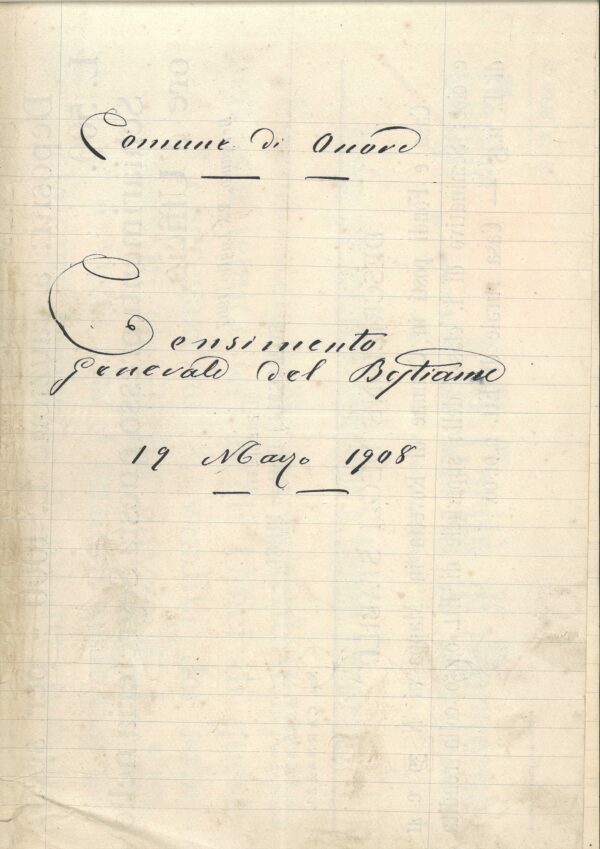 Comune di Onore
Censimento
generale del Bestiame
19 Marzo 1908